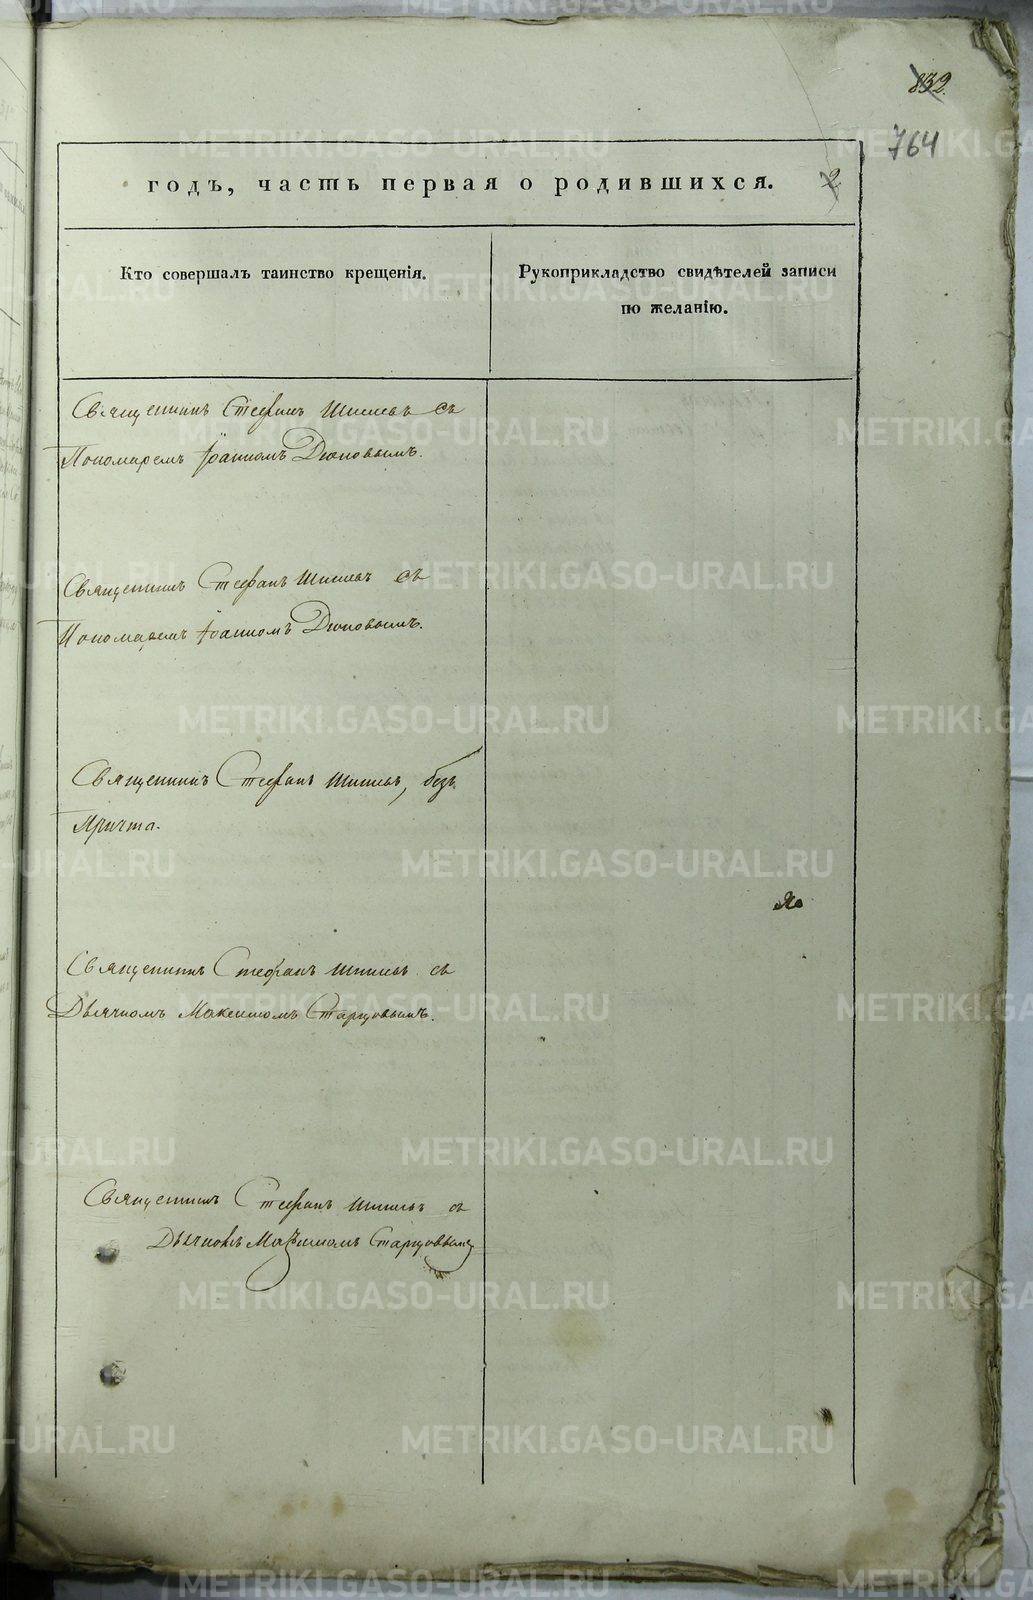 832.
764
годъ, часть первая о родившихся. 2
Кто совершалъ таинство крещенія.
Рукоприкладство свидѣтелей записи
по желанію.
Священникъ Стефанъ Шишевъ съ
Пономаремъ Іоанномъ Дюповымъ.
Священникъ Стефанъ Шишевъ съ
Пономаремъ Іоанномъ Дюповымъ.
Священникъ Стефанъ Шишевъ, безъ
Причта.
Священникъ Стефанъ Шишевъ съ
Дьячкомъ Максимомъ Старцовымъ.
Священникъ Стефанъ Шишевъ съ
Дьячкомъ Максимомъ Старцовымъ
METRIKI.GASO-URAL.RU